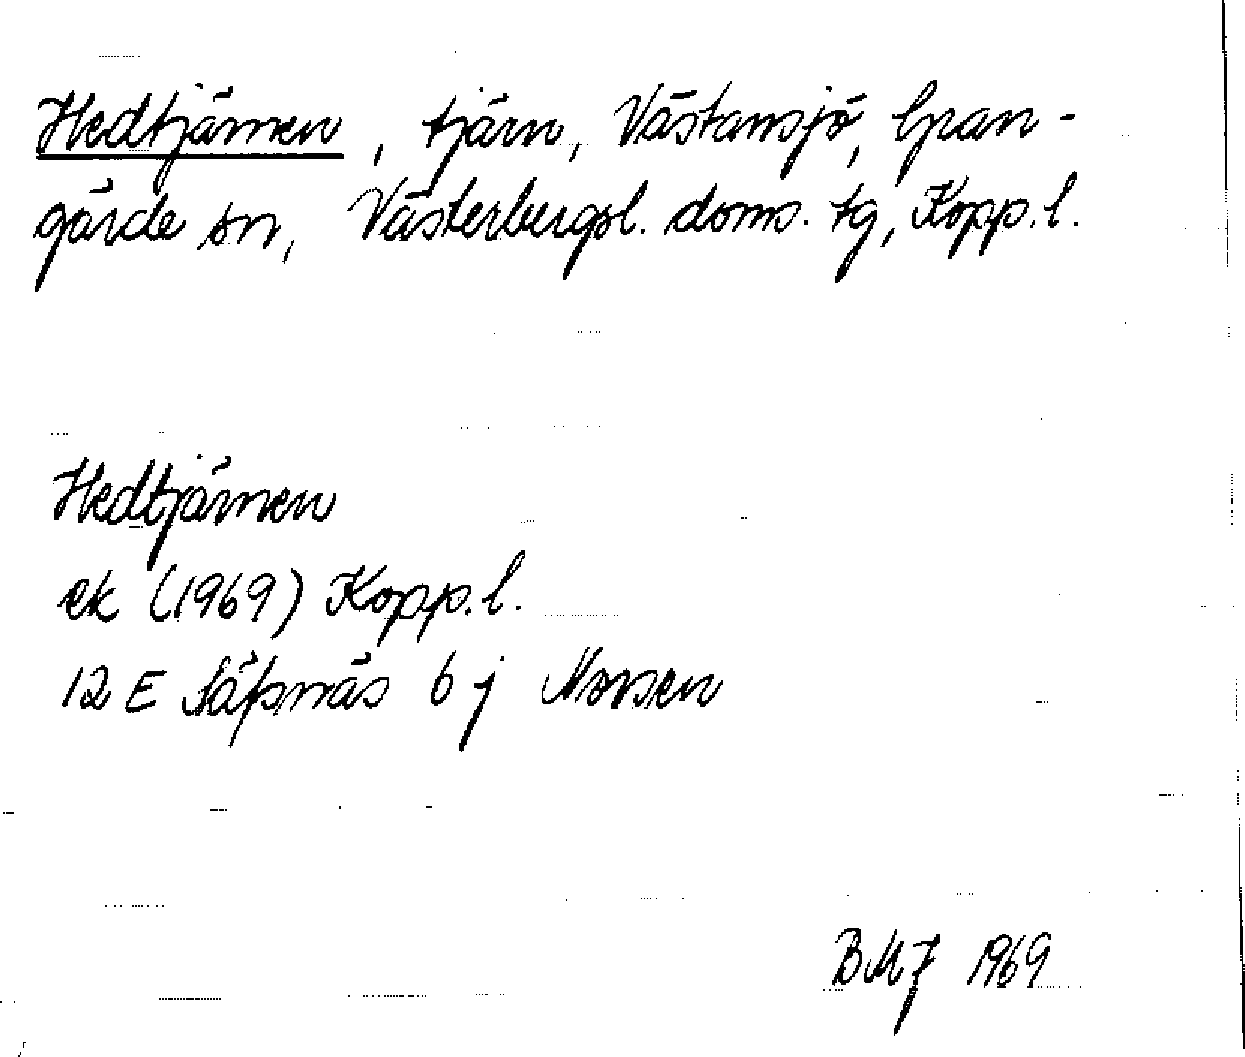 Hedtjärnen, tjärn, Västansjö, Gran-
gärde sn, Västerbergsl. doms. tg, Kopp. l.
Hedtjärnen
ek (1969) Kopp. l.
12 E Säfsnäs 6 j Norsen
BMJ 1969